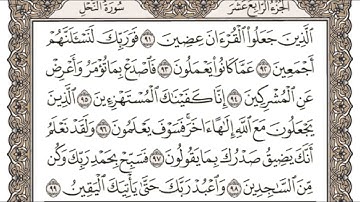 الجزء الرابع عشر
سورة النحل
الذين جعلوا القرءان عضين ٩١ فوربك لنسـٔلنهم
أجمعين ٩٢ عما كانوا يعملون ٩٣ فاصدع بما تؤمر وأعرض
عن المشركين ٩٤ إنا كفينك المستهزءين ٩٥ الذين
يجعلون مع الله إلها ءاخر فسوف يعلمون ٩٦ ولقد نعلم
أنك يضيق صدرك بما يقولون ٩٧ فسبح بحمد ربك وكن
من السجدين ٩٨ واعبد ربك حتى يأتيك اليقين ٩٩